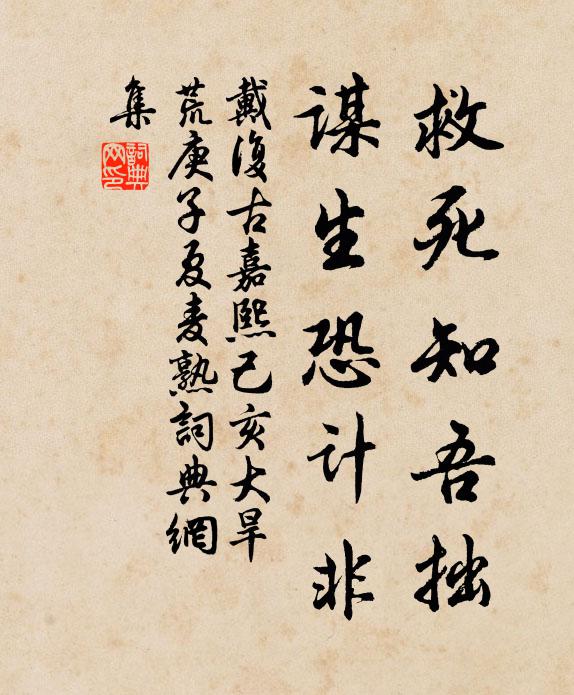 救死知吾拙
谋生恐计非
戴復古嘉熙己亥大旱
荒庚子夏麦熟詞典網
集
詞典
网印